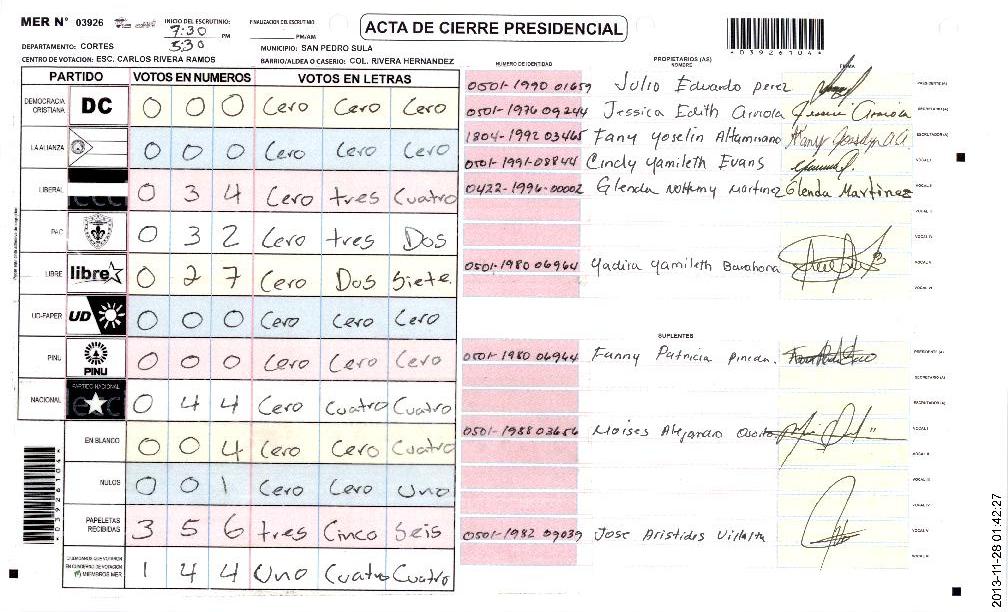 MER N° 03926
INICIO DEL ESCRUTINIO:
7:30 PM
5:30
FINALIZACION DEL ESCRUTINIO
PM/AM
ACTA DE CIERRE PRESIDENCIAL
*03926104*
DEPARTAMENTO: CORTES
MUNICIPIO: SAN PEDRO SULA
CENTRO DE VOTACION: ESC. CARLOS RIVERA RAMOS
BARRIO/ALDEA O CASERIO: COL. RIVERA HERNANDEZ
PARTIDO VOTOS EN NUMEROS VOTOS EN LETRAS
DEMOCRACIA CRISTIANA DC 0 0 0 Cero Cero Cero
LA ALIANZA 0 0 0 Cero Cero Cero
LIBERAL 0 3 4 Cero tres Cuatro
PAC 0 3 2 Cero tres Dos
LIBRE libre 0 2 7 Cero Dos Siete
UD-FAPER UD 0 0 0 Cero Cero Cero
PINU PINU 0 0 0 Cero Cero Cero
NACIONAL PARTIDO NACIONAL 0 4 4 Cero Cuatro Cuatro
EN BLANCO 0 0 4 Cero Cero Cuatro
NULOS 0 0 1 Cero Cero Uno
PAPELETAS RECIBIDAS 3 5 6 tres Cinco Seis
CIUDADANOS QUE VOTARON EN CUADERNO DE VOTACION Y MIEMBROS MER 1 4 4 Uno Cuatro Cuatro
*03926104*
NUMERO DE IDENTIDAD
PROPIETARIOS (AS)
NOMBRE
FIRMA
0501-1990 01659 Julio Eduardo perez PRESIDENTE(A)
0501-1976 09244 Jessica Edith Arriola SECRETARIO(A)
1804-1992 03465 Fany Yoselin Altamirano ESCRUTADOR(A)
0501-1991-08844 Cindy Yamileth Evans VOCAL I
0422-1996-00002 Glenda Nohemy Martinez Glenda Martinez VOCAL II
VOCAL III
VOCAL IV
0501-1980 06964 Yadira Yamileth Barahona VOCAL V
VOCAL VI
SUPLENTES
0501-1980 06964 Fanny Patricia pineda. PRESIDENTE (A)
SECRETARIO (A)
ESCRUTADOR (A)
0501-1988 03656 Moises Alejandro VOCAL I
VOCAL II
VOCAL III
VOCAL IV
0501-1982 09039 Jose Aristides Villalta VOCAL V
VOCAL VI
2013-11-28 01:42:27